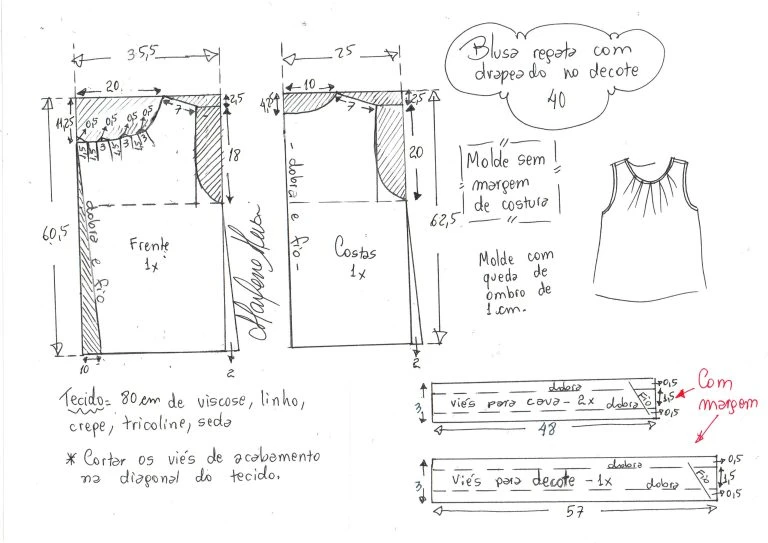 35,5
25
Blusa regata com
drapeado no decote
40
20
10
2,5
2,5
11,25
0,5
0,5
0,5
0,5
3
3
7
4,5
7
18
20
60,5
62,5
dobra e fio
- dobra e fio -
Frente
1x
Costas
1x
Molde sem
margem
de costura
Molde com
queda de
ombro de
1 cm.
10
2
2
Tecido= 80 cm de viscose, linho,
crepe, tricoline, seda
* Cortar os viés de acabamento
na diagonal do tecido.
dobra
viés para cava - 2x
dobra
Fio
3
0,5
1,5
0,5
48
Com
margem
dobra
viés para decote - 1x
dobra
Fio
3
0,5
1,5
0,5
57